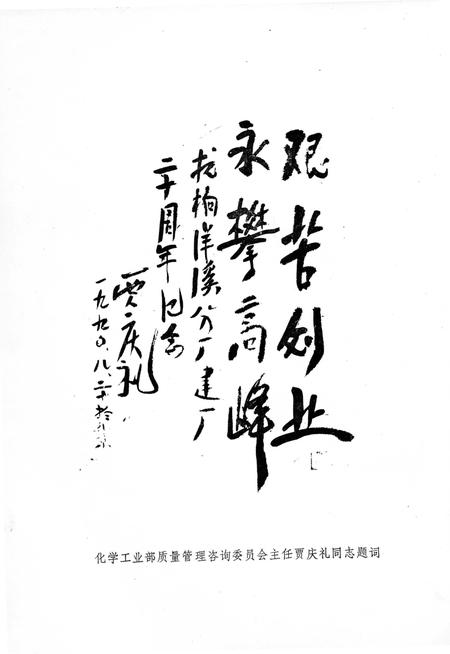 艰苦创业
永攀高峰
祝柏洋溪分厂建厂
二十周年纪念
贾庆礼
一九九〇.八.二十
化学工业部质量管理咨询委员会主任贾庆礼同志题词